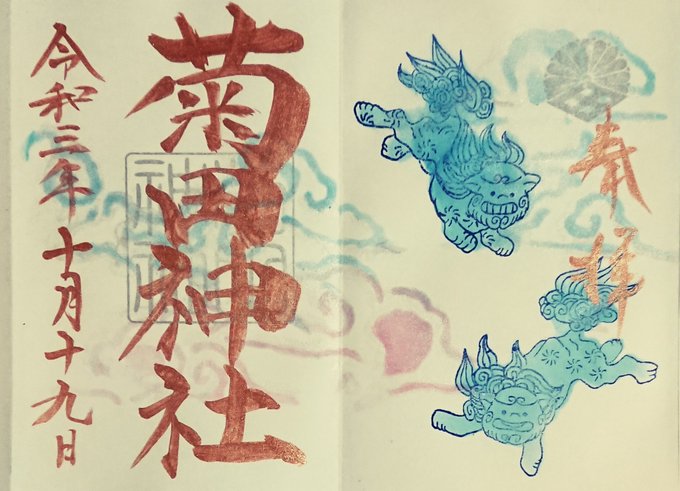 奉拝
菊田神社
令和三年十月十九日